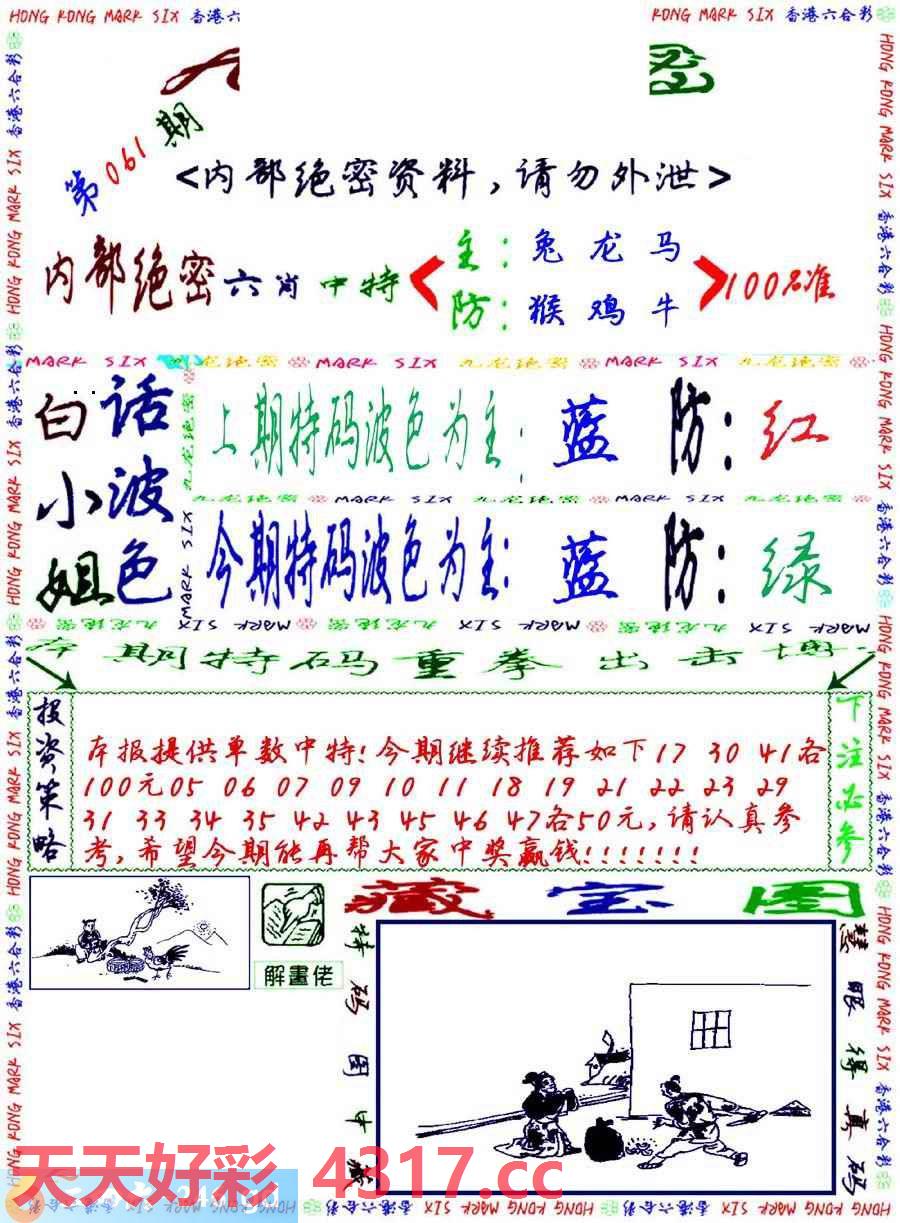 HONG KONG MARK SIX 香港六
KONG MARK SIX 香港六合彩
第061期
<内部绝密资料,请勿外泄>
内部绝密六肖中特
主:兔龙马
防:猴鸡牛
100%准
MARK SIX 九龙绝密 MARK SIX 九龙绝密 MARK SIX 九龙绝密
白小姐
话波色
上期特码波色为主:蓝 防:红
九龙绝密 MARK SIX 九龙绝密 MARK SIX
今期特码波色为主:蓝 防:绿
MARK SIX 九龙绝密 MARK SIX 九龙绝密 MARK SIX
期特码重拳出击
投资策略
本报提供单数中特!今期继续推荐如下17 30 41各
100元05 06 07 09 10 11 18 19 21 22 23 29
31 33 34 35 42 43 45 46 47各50元,请认真参
考,希望今期能再帮大家中奖赢钱!!!!!!!
下注必参
解畫佬
藏宝图
特码图中藏
慧眼得真码
天天好彩 4317.cc